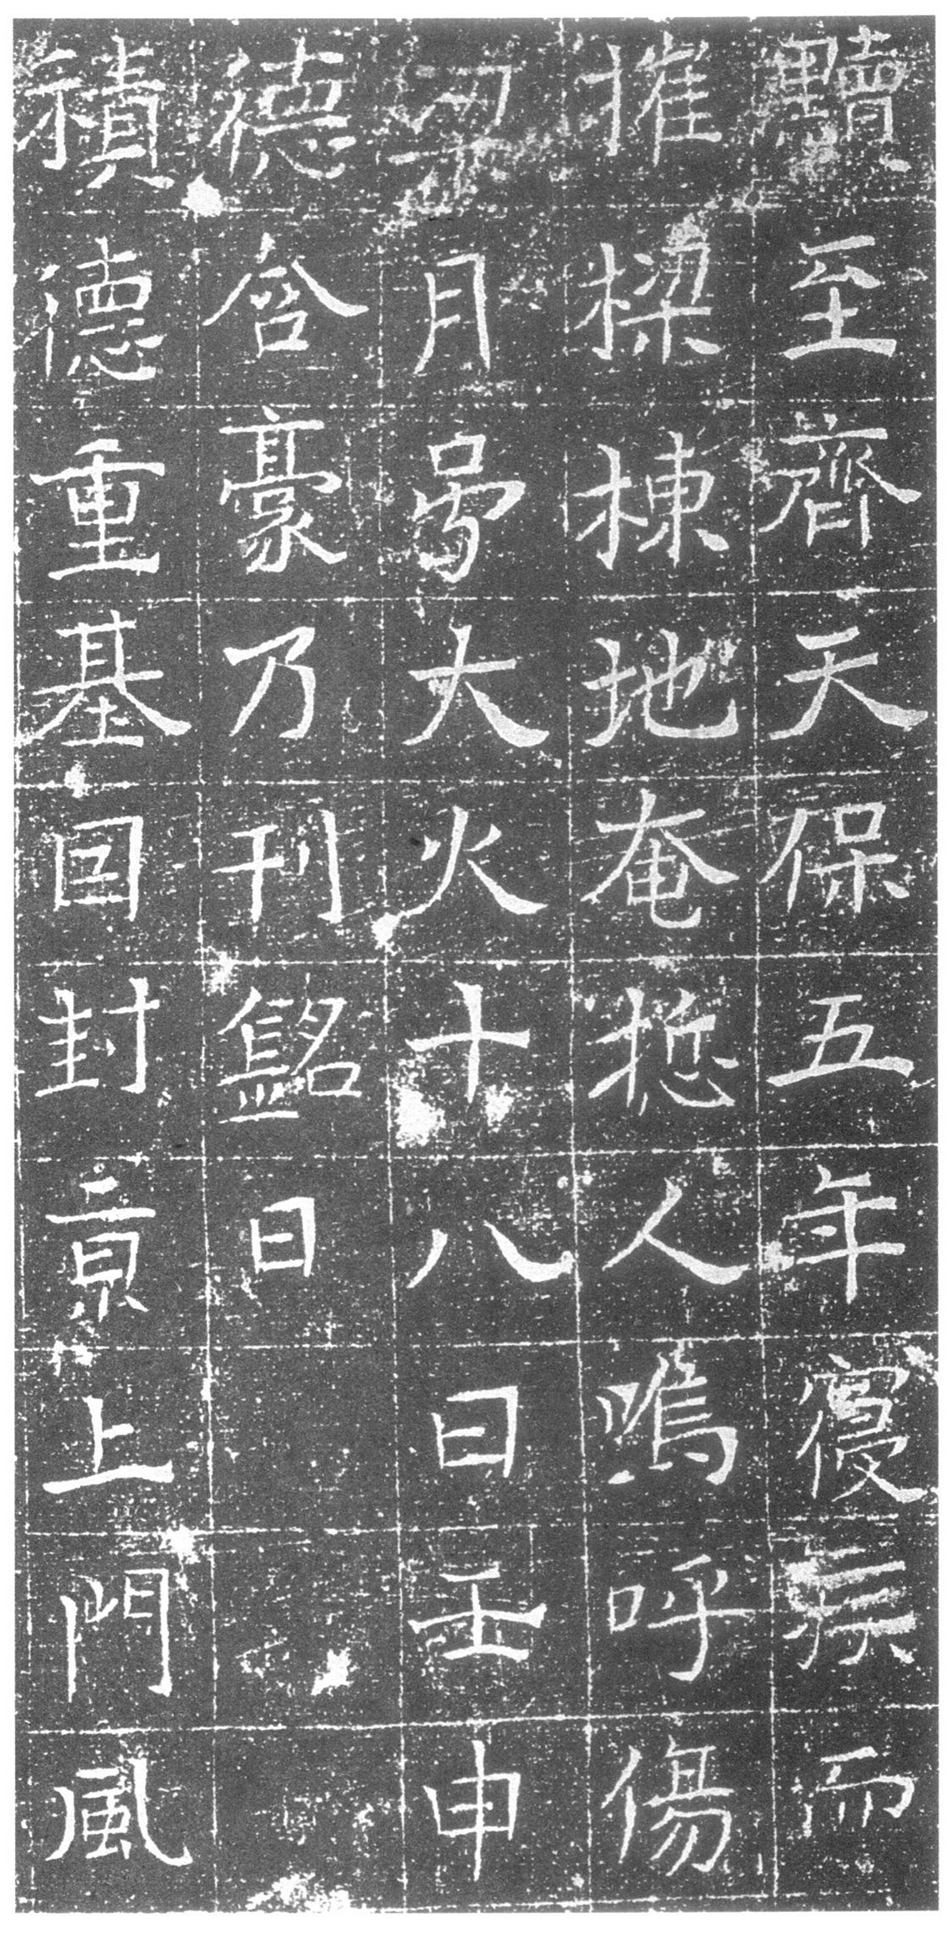 黷至齊天保五年寑疾而
摧樑棟地奄悊人嗚呼傷
月号大火十八日壬申
德含豪乃刊銘曰
積德重基囯封景上門風